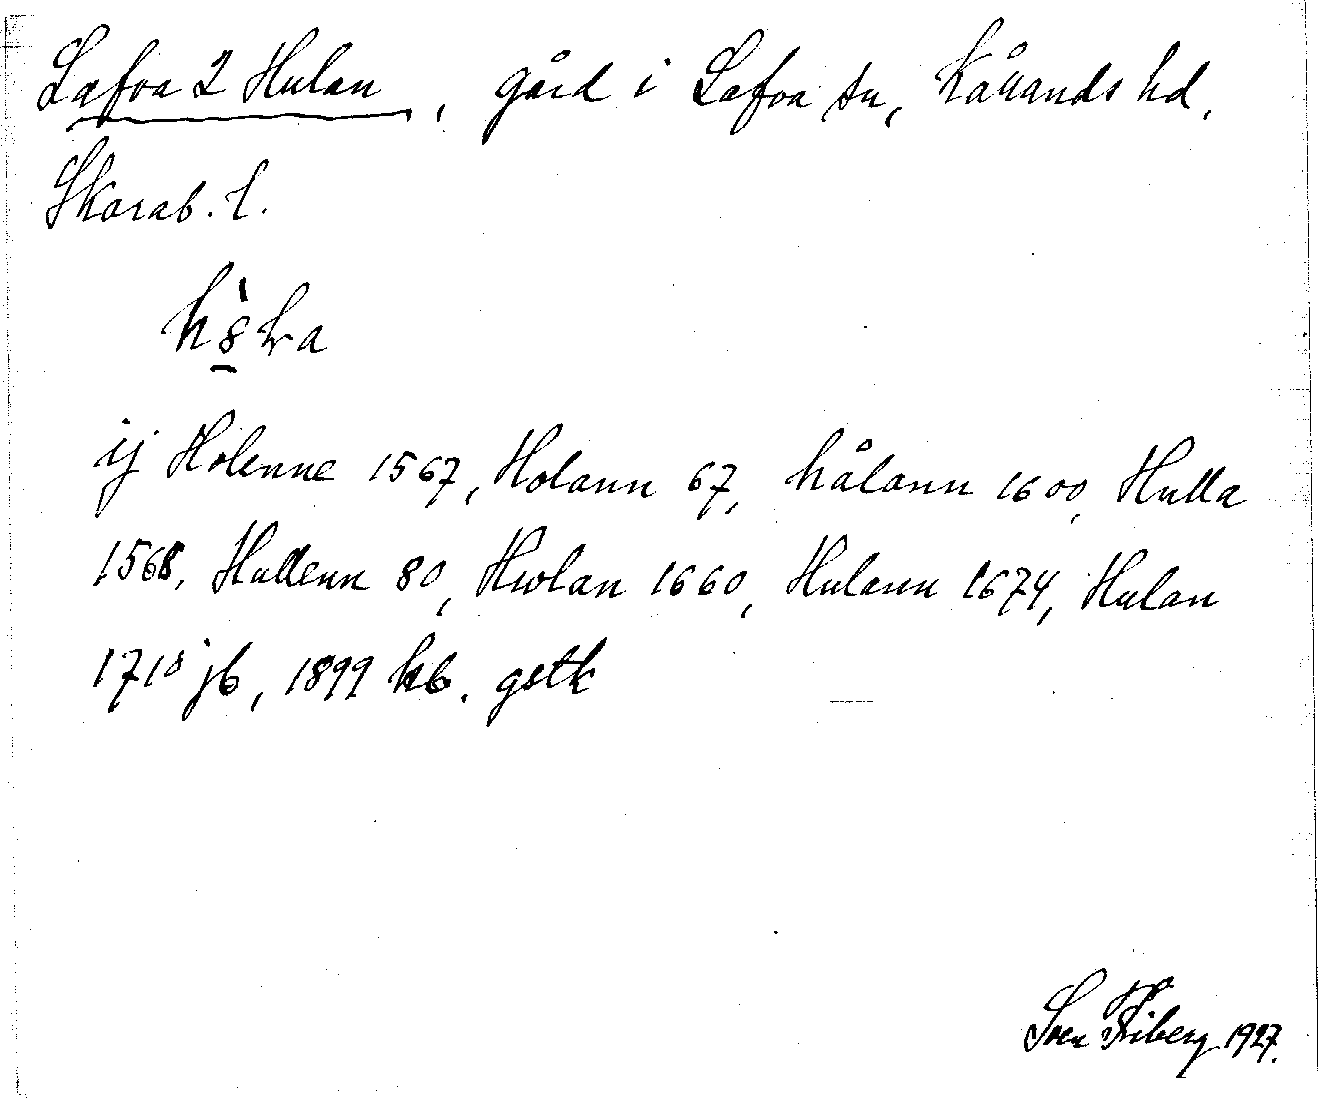 Lafva 2 Hulan, gård i Lafva sn, Kållands hd,
Skarab. l.
ij Holenne 1567, Holann 67, hålann 1600, Hulla
1568, Hullenn 80, Hwlan 1660, Hulann 1674, Hulan
1715 jb, 1899 kb. gstk
Sven Friberg 1927.